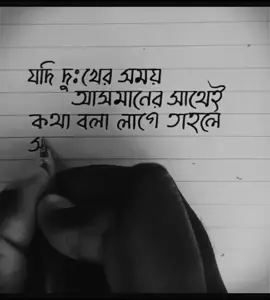 যদি দুঃখের সময়
আসমানের সাথেই
কথা বলা লাগে তাহলে